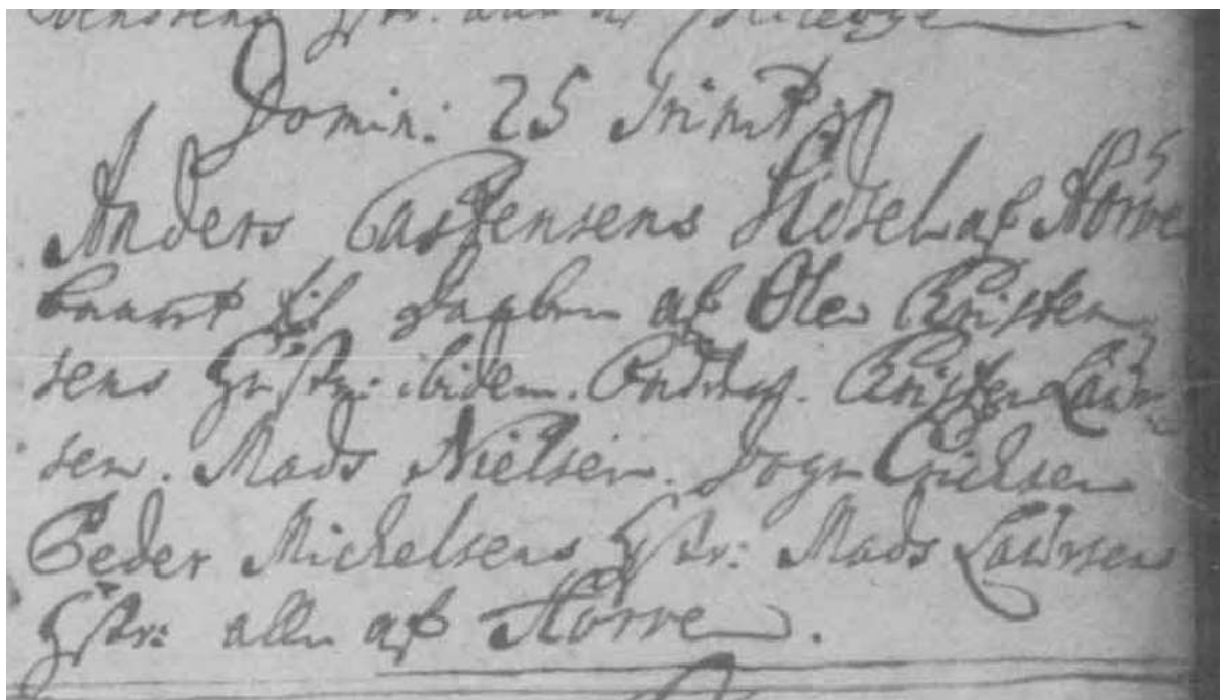 Hstr: alle af
Domin: 25 Trinit:
Anders Castensens Sidsel af Hörve
baaret til Daaben af Ole Christen
sens Hustr: ibidem. Christen Laur
sen. Mads Nielsen. Erichsen
Peder Michelsens Hstr: Mads Laursens
Hstr: alle af Hörve.